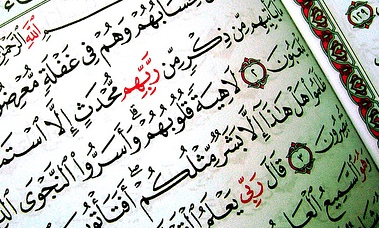 ٱللَّهِ ٱلرَّحْمَٰ
حِسَابُهُمْ وَهُمْ فِى غَفْلَةٍ مُّعْرِضُ
يهِم مِّن ذِكْرٍ مِّن رَّبِّهِم مُّحْدَثٍ إِلَّا ٱسْتَمَ
يَلْعَبُونَ ٢ لَاهِيَةً قُلُوبُهُمْ ۗ وَأَسَرُّوا۟ ٱلنَّجْوَى ٱلَّ
هَلْ هَٰذَآ إِلَّا بَشَرٌ مِّثْلُكُمْ ۖ أَفَتَأْتُو
تُبْصِرُونَ ٣ قَالَ رَبِّى يَعْلَمُ ٱلْقَ
وَهُوَ ٱلسَّمِيعُ ٱلْعَلِ